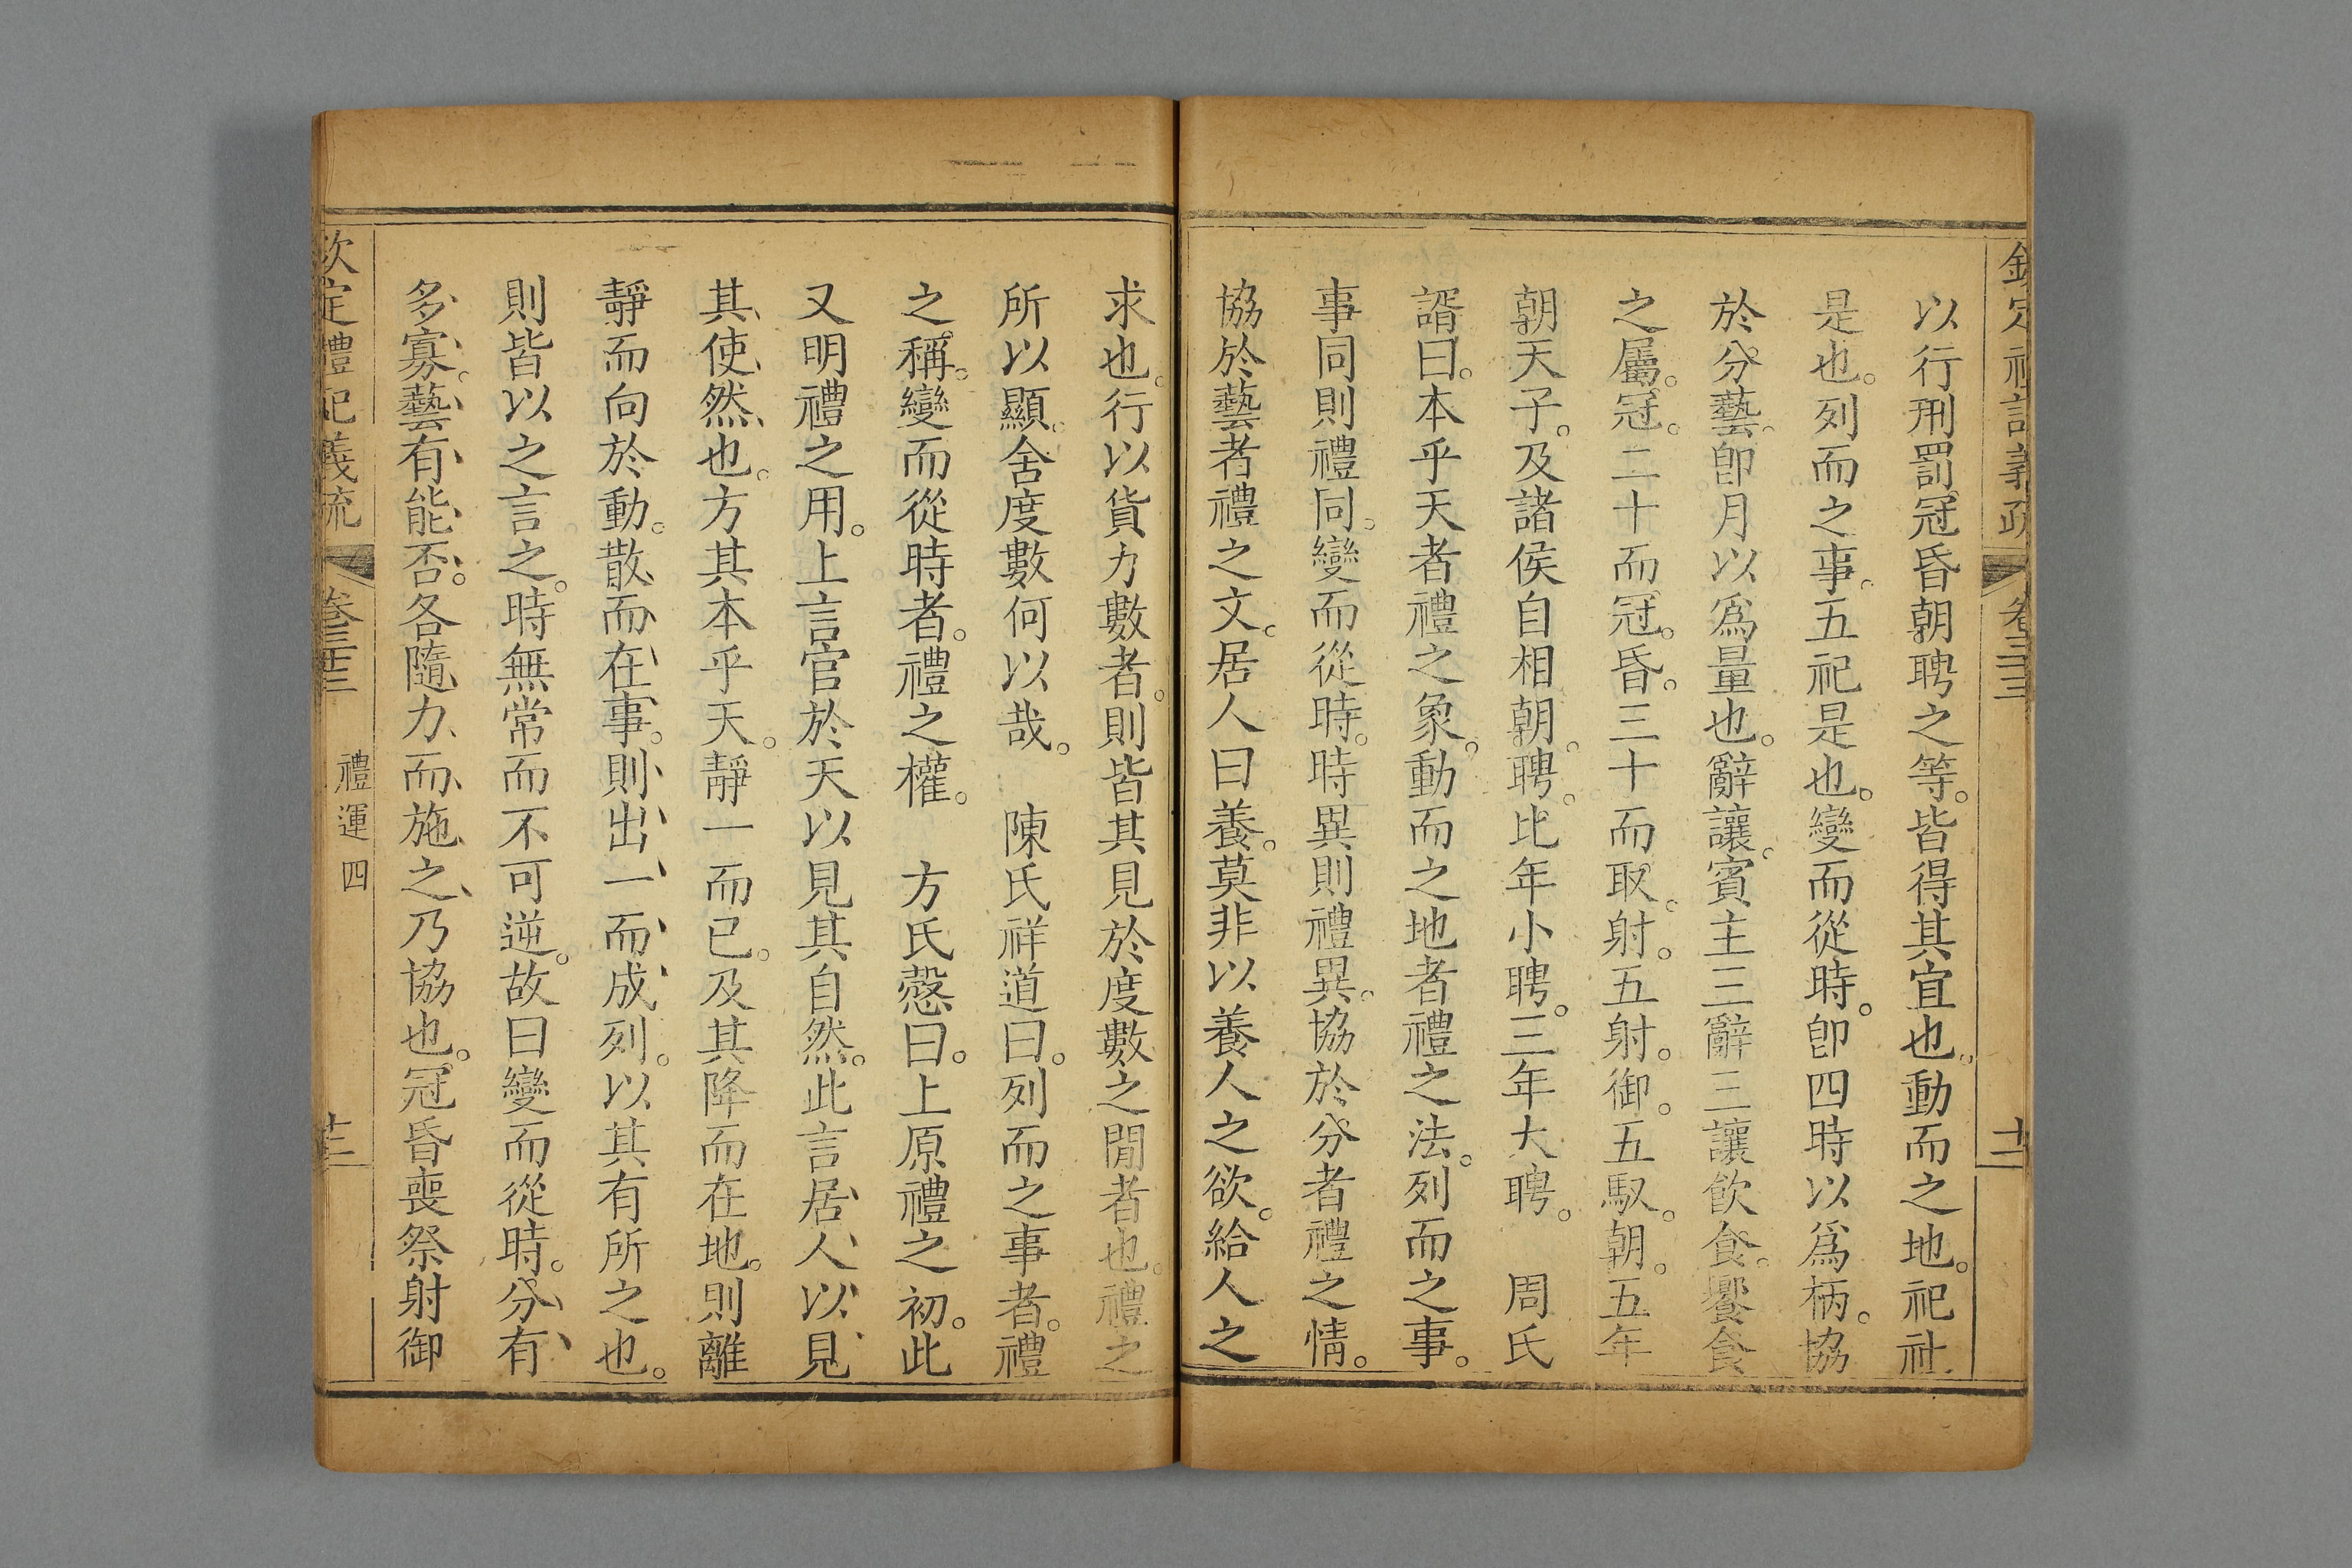 欽定禮記義疏 卷三十三 十二
以行刑罰冠昏朝聘之等。皆得其宜也。動而之地。祀社
是也。列而之事。五祀是也。變而從時。卽四時以爲柄。協
於分藝。卽月以爲量也。辭讓。賓主三辭三讓飮食。饗食
之屬。冠。二十而冠。昏。三十而取。射。五射。御。五馭。朝。五年
朝天子。及諸侯自相朝。聘。比年小聘。三年大聘。 周氏
諝曰。本乎天者禮之象。動而之地者禮之法。列而之事。
事同則禮同。變而從時。時異則禮異。協於分者禮之情。
協於藝者禮之文。居人曰養。莫非以養人之欲。給人之
求也。行以貨力數者。則皆其見於度數之閒者也。禮之
所以顯。舍度數何以哉。 陳氏祥道曰。列而之事者。禮
之稱。變而從時者。禮之權。 方氏慤曰。上原禮之初。此
又明禮之用。上言官於天以見其自然。此言居人以見
其使然也。方其本乎天。靜一而已。及其降而在地。則離
靜而向於動。散而在事。則出一而成列。以其有所之也。
則皆以之言之。時無常而不可逆。故曰變而從時。分有
多寡。藝有能否。各隨力而施之乃協也。冠昏喪祭射御
欽定禮記義疏 卷三十三 禮運四 十二